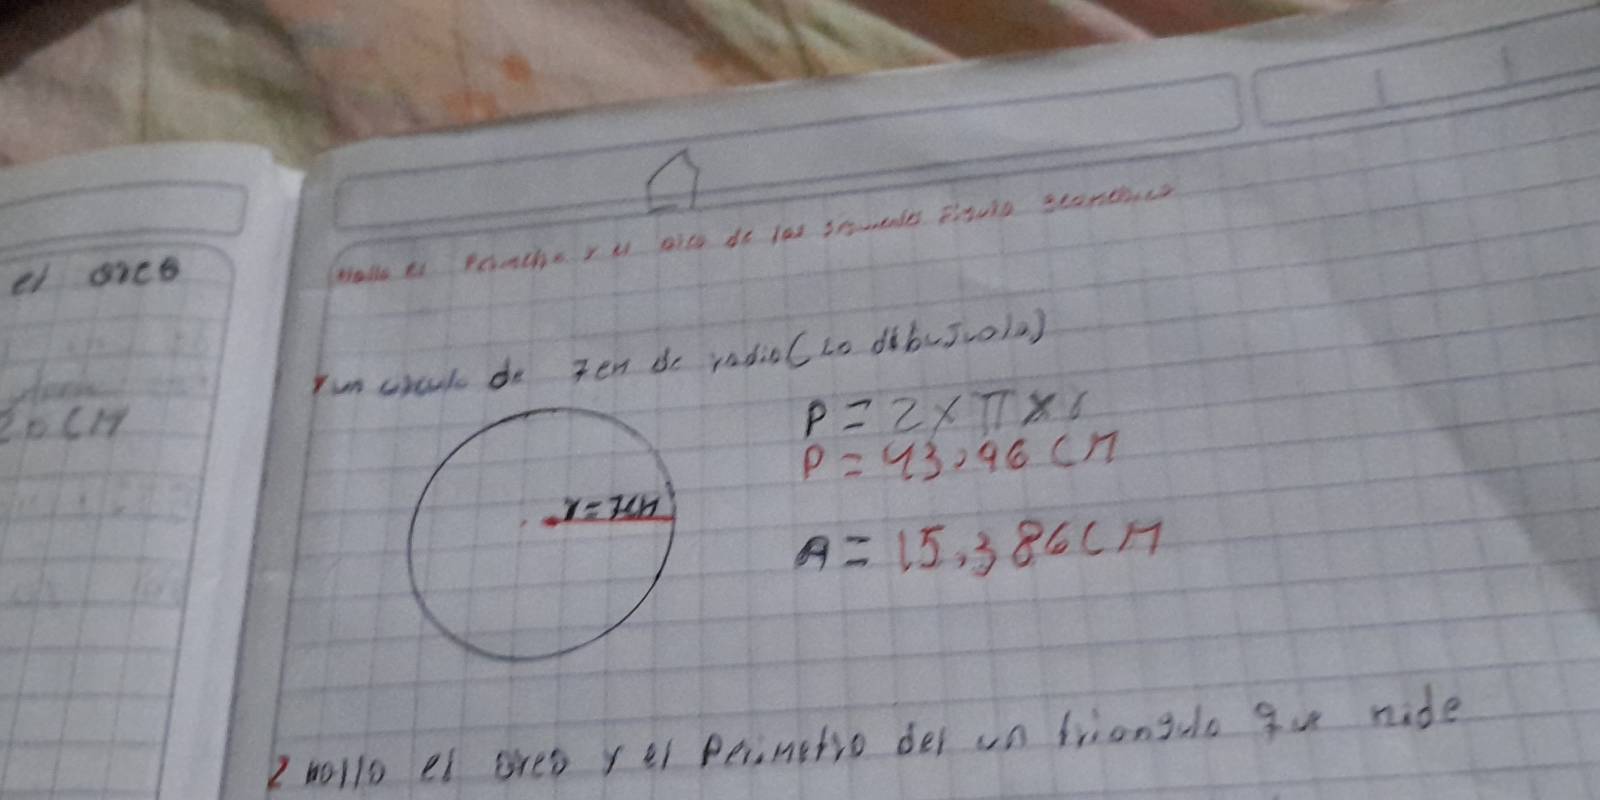 el area
20 CM
Halla el Perimetro y el area de las siguientes Figura geometrica
1 un circulo de 7cm de radio (Lo dibujuala)
P = 2 x π x r
P = 43,96 CM
r = 7cm
A = 15,386 CM
2 Halla el area y el Perimetro del un triangulo que mide